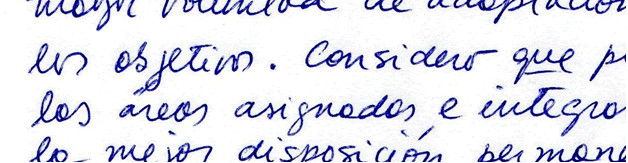 mayor voluntad de adaptación
los objetivos. Considero que p
las áreas asignadas e integra
la mejor disposición perman